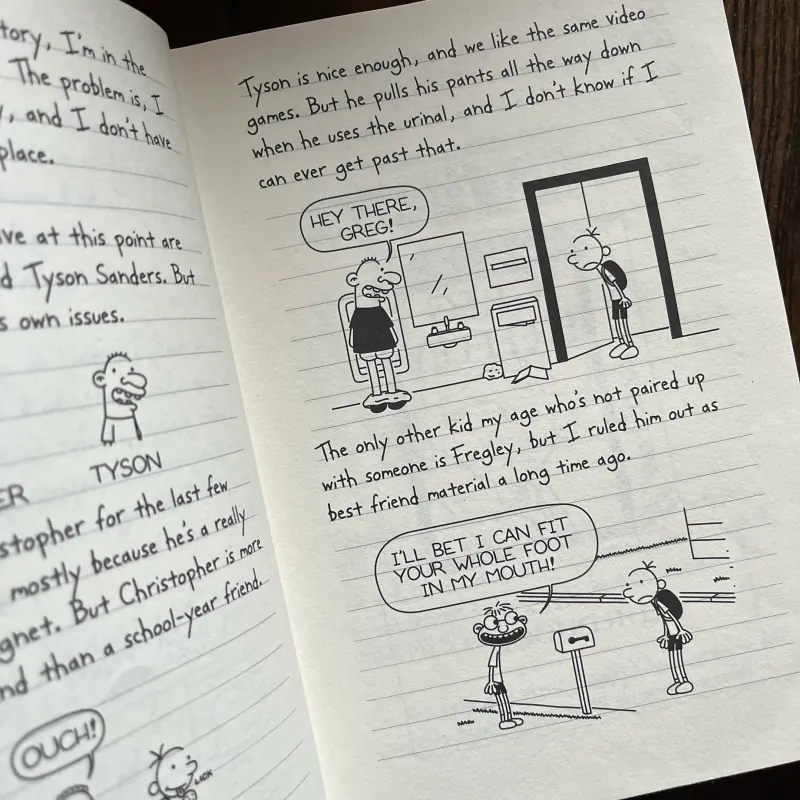 tory, I'm in the
The problem is, I
, and I don't have
place.
ve at this point are
d Tyson Sanders. But
s own issues.
TYSON
ER
stopher for the last few
mostly because he's a really
gnet. But Christopher is more
nd than a school-year friend.
OUCH!
LICK
Tyson is nice enough, and we like the same video
games. But he pulls his pants all the way down
when he uses the urinal, and I don't know if I
can ever get past that.
HEY THERE,
GREG!
The only other kid my age who's not paired up
with someone is Fregley, but I ruled him out as
best friend material a long time ago.
I'LL BET I CAN FIT
YOUR WHOLE FOOT
IN MY MOUTH!